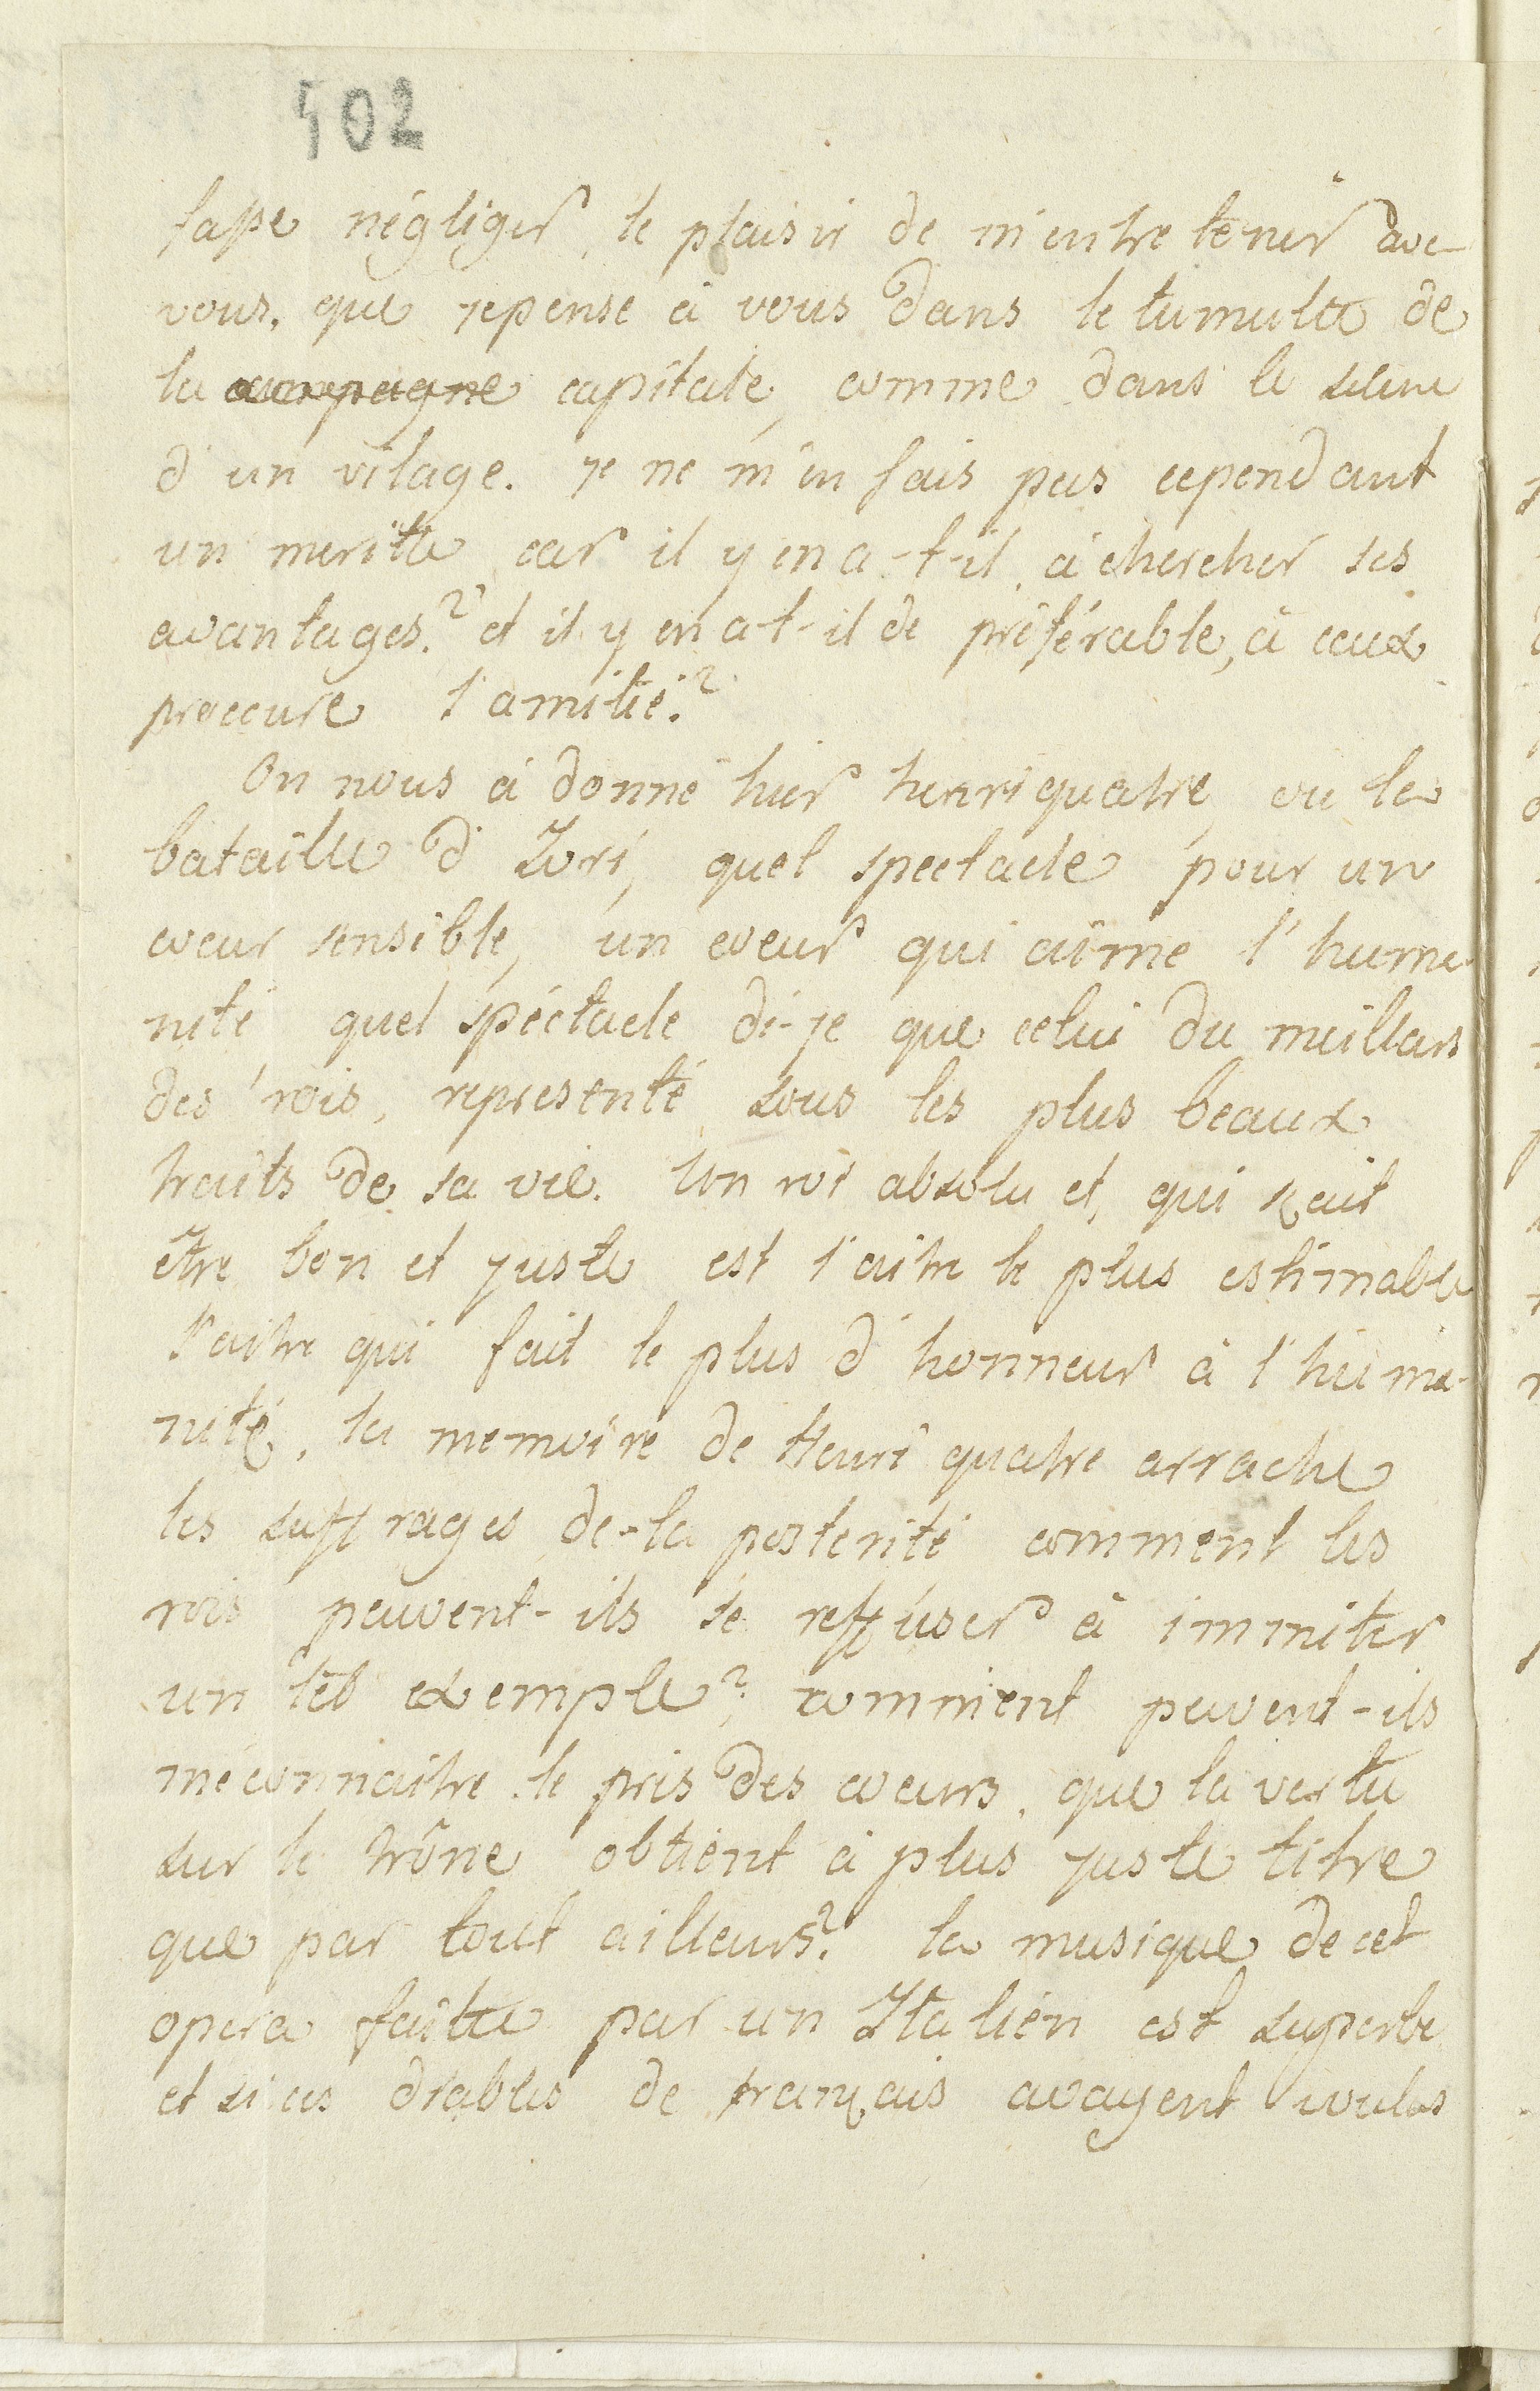 402
fasse négliger, le plaisir de m'entretenir avec
vous, que je pense à vous dans le tumulte de
la campagne capitale, comme dans le silence
d'un vilage. je ne m'en fais pas cependant
un meritte car il y en a-t-il à chercher ses
avantages? et il y en a-t-il de préférable, à ceux
proccure l'amitié?
On nous à donné hier henri quatre, ou la
bataille d'Ivri, quel spectacle pour un
coeur sensible, un coeur qui aime l'huma-
nité quel spéctacle di-je que celui du meillars
des rois, representé sous les plus beaux
traits de sa vie. Un roi absolu et, qui sçait
être bon et juste est l'aitre le plus estimable
l'aitre qui fait le plus d'honneur à l'huma-
nité, la memoire de Henri quatre arrache
les suffrages de-la posterité comment les
rois peuvent-ils se reffuser à immiter
un tel exemple? comment peuvent-ils
méconnaitre le pris des coeurs, que la vertu
sur le trône obtient à plus juste titre
que par tout ailleurs? la musique de cet
opera faitte par un Italien est superbe
et si ces diables de français avayent voulus